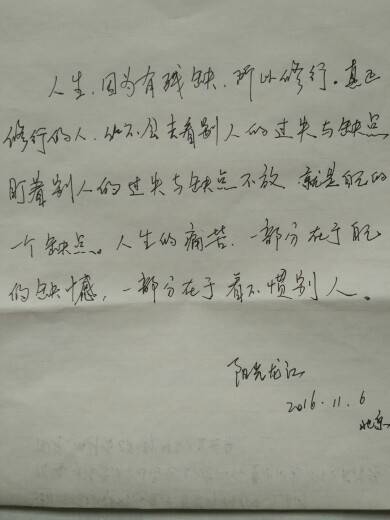 人生,因为有残缺,所以修行。真正
修行的人,从不会去看别人的过失与缺点
盯着别人的过失与缺点不放,就是自己的
一个缺点。人生的痛苦,一部分在于自己
的缺憾,一部分在于看不惯别人。
阳光龙江
2016.11.6
北京